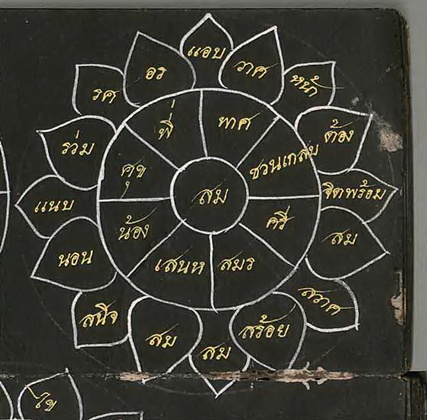 แอบ
วาศ
หน้ำ
ต้อง
จิตพร้อม
สม
สวาศ
สร้อย
สม
สม
สนิจ
นอน
แนบ
ร่วม
รศ
อร
พี่
พาศ
ชวนเกสบ
ศรี
สมร
เสนห
น้อง
ศุข
สม
ไข